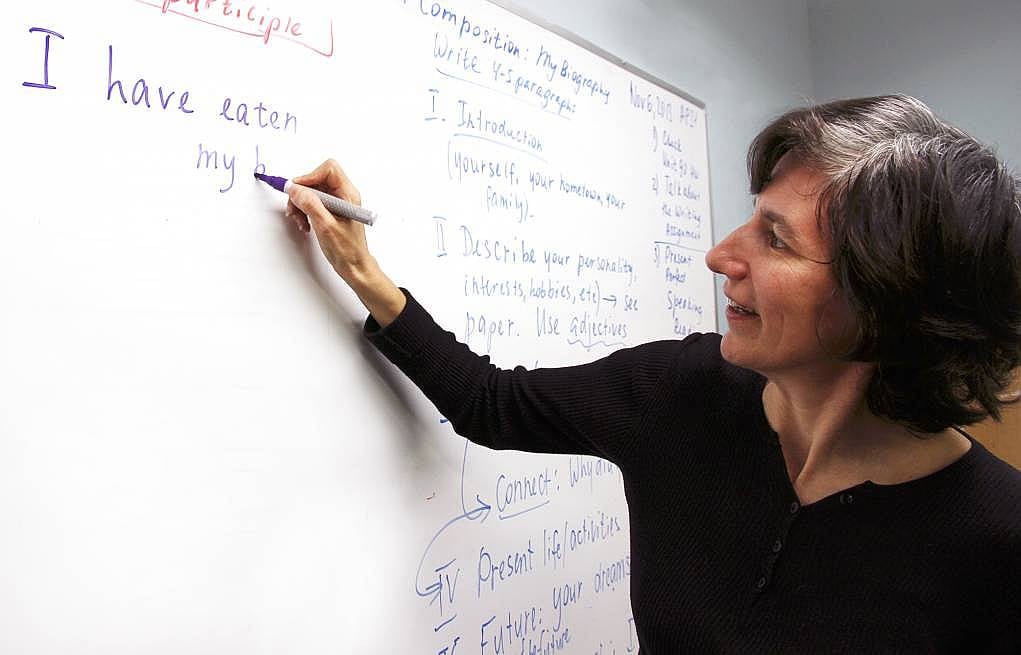 participle
I have eaten
my b
Composition: My Biography
Write 4-5 paragraphs
I. Introduction
(yourself, your hometown, your
family).
II Describe your personality,
interests, hobbies, etc) → see
paper. Use adjectives
Connect: Why did
IV Present life/activities
Future: your dreams
Nov 6, 2013
1) Check
2) Talk about
the Writing
Assignment
3) Present
Perfect
Speaking